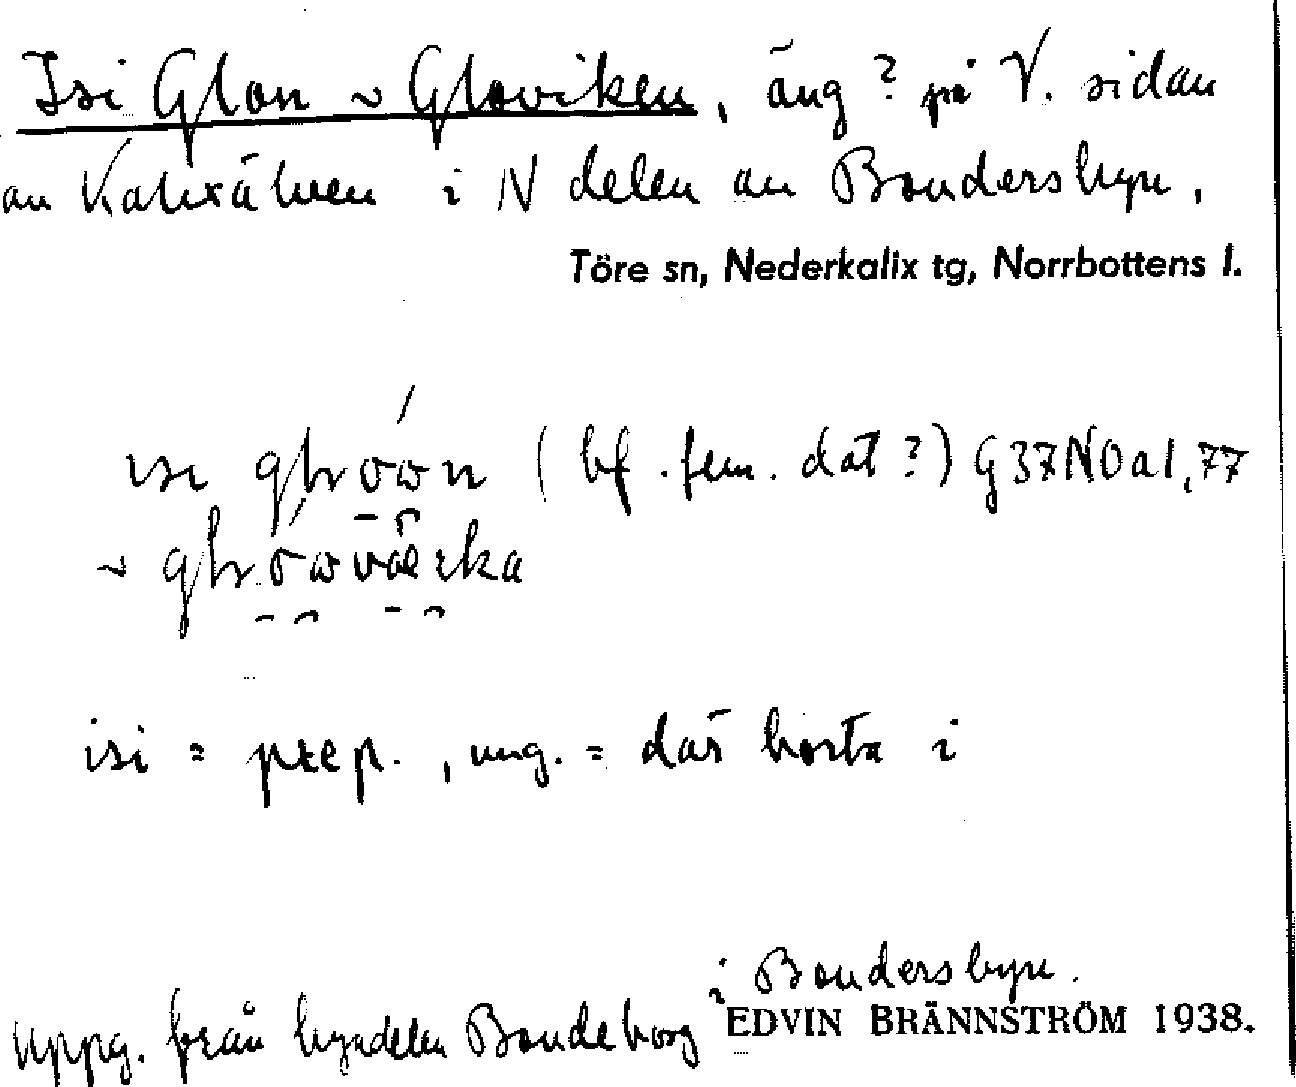 Isi Glon ~ Gloviken, äng? på V. sidan
av Kalixälven i N delen av Bondersbyn,
Töre sn, Nederkalix tg, Norrbottens l.
ɩsɩ (bf. fem. dat?) G37NOa1,77
~
isi = prep., ung. = där borta i
i Bondersbyn.
uppg. från byndelen Bondeborg EDVIN BRÄNNSTRÖM 1938.